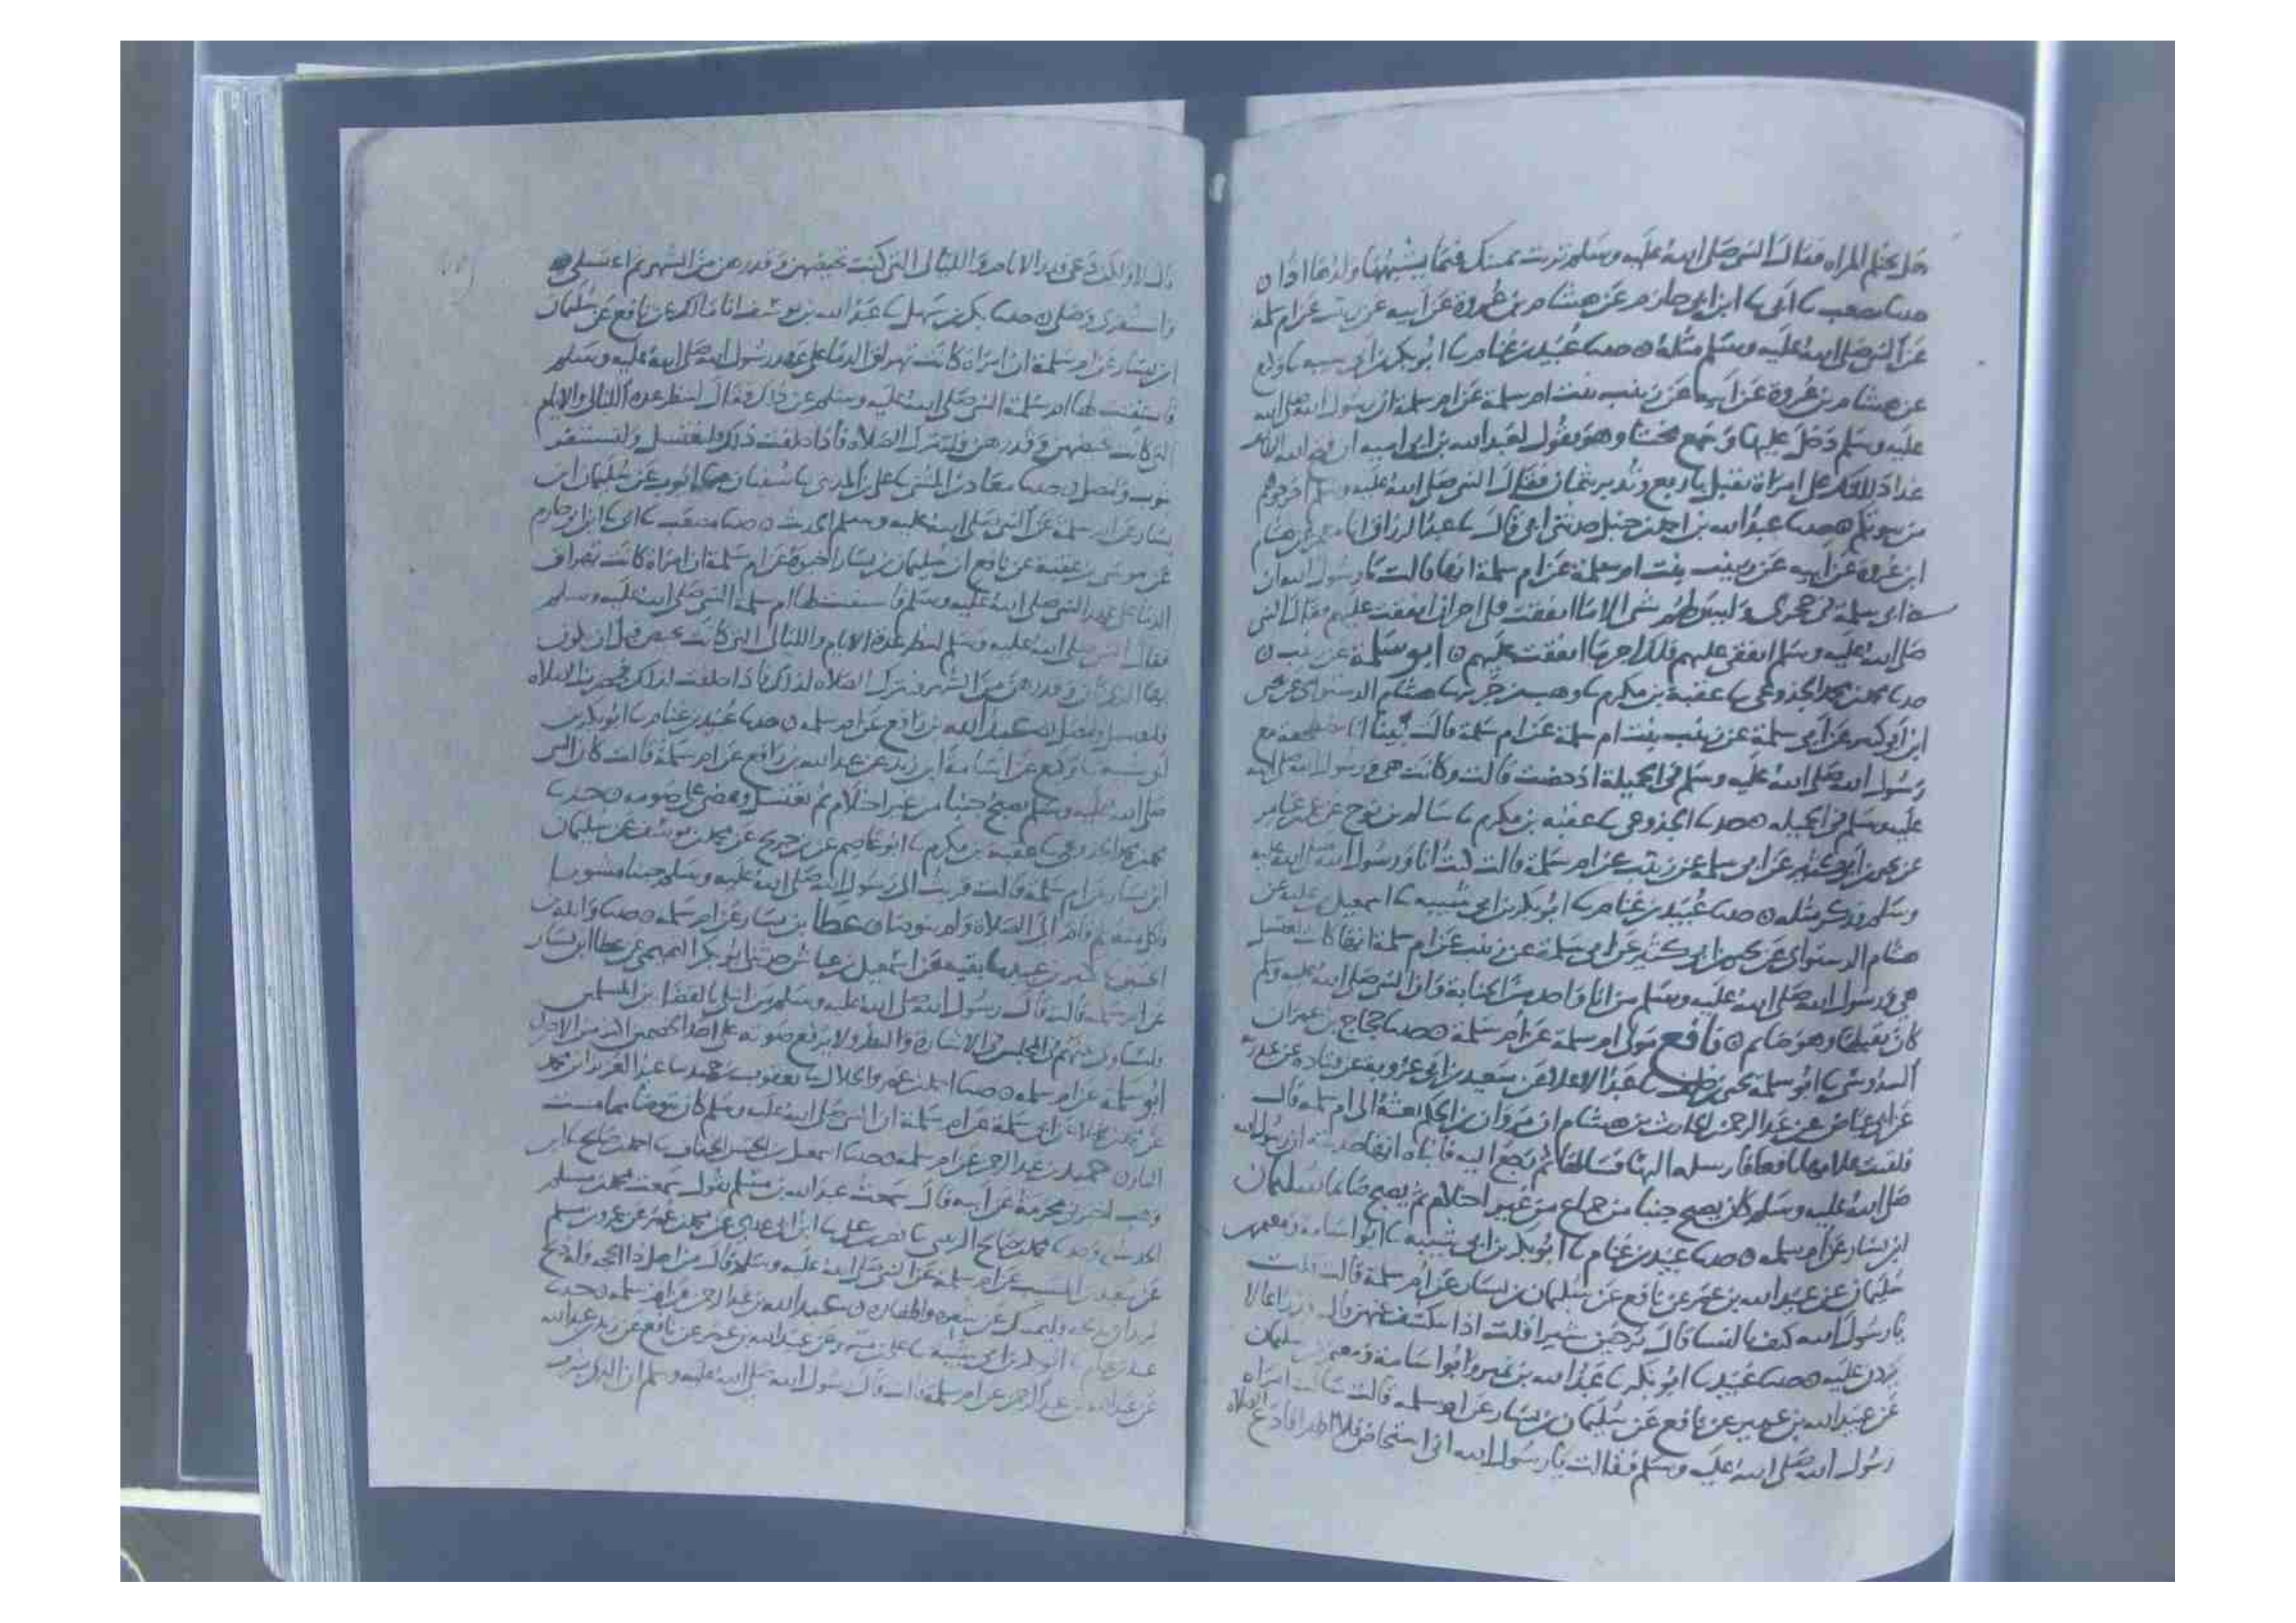 هل تحتلم المراة فقال النبي صلى الله عليه وسلم تربت يمينك فبما يشبهها ولدها اذا ن
حدثنا مصعب نا ابي نا ابن ابي حازم عن هشام بن عروة عن ابيه عن زينب عن ام سلمة
عن النبي صلى الله عليه وسلم مثله ن حدثنا عبيد بن غنام نا ابو بكر بن ابي شيبة نا وكيع
عن هشام بن عروة عن ابيه عن زينب بنت ام سلمة عن ام سلمة ان رسول الله صلى الله
عليه وسلم دخل عليها وسمع مخنثا وهو يقول لعبد الله بن ابي امية ان فتح الله الطائف
غدا دللتك على امراة تقبل باربع وتدبر بثمان فقال النبي صلى الله عليه وسلم اخرجوهم
من بيوتكم ن حدثنا عبد الله بن احمد بن حنبل حدثني ابي قال نا عبد الرزاق انا معمر عن هشام
ابن عروة عن ابيه عن زينب بنت ام سلمة عن ام سلمة انها قالت يا رسول الله ان
بني ابي سلمة في حجري وليس لهم شي الا ما انفقت فلي اجر ان انفقت عليهم فقال النبي
صلى الله عليه وسلم انفقي عليهم فلك اجر ما انفقت عليهم ن ابو سلمة عن زينب ن
حدثنا محمد بن محمد الجذوعي نا عقبة بن مكرم نا وهب بن جرير نا هشام الدستوائي عن يحيى
ابن ابي كثير عن ابي سلمة عن زينب بنت ام سلمة عن ام سلمة قالت بينا انا مضطجعة مع
رسول الله صلى الله عليه وسلم في الخميلة اذ حضت قالت وكانت هي ورسول الله صلى الله
عليه وسلم في الخميله ن حدثنا الجذوعي نا عقبة بن مكرم نا سالم بن نوح عن عمر بن عامر
عن يحيى بن ابي كثير عن ابي سلمة عن زينب عن ام سلمة قالت كنت انا ورسول الله صلى الله عليه
وسلم وذكر مثله ن حدثنا عبيد بن غنام نا ابو بكر بن ابي شيبة نا اسمعيل بن علية عن
هشام الدستوائي عن يحيى بن ابي كثير عن ابي سلمة عن زينب عن ام سلمة انها كانت تغتسل
هي ورسول الله صلى الله عليه وسلم من انا واحد من الجنابة وان النبي صلى الله عليه وسلم
كان يقبلها وهو صايم ن نافع مولى ام سلمة عن ام سلمة ن حدثنا حجاج بن عمران
السدوسي نا ابو سلمة يحيى بن خلف نا عبد الاعلى عن سعيد بن ابي عروبة عن قتادة عن عبد ربه
عن ابي عياض عن عبد الرحمن بن الحارث بن هشام ان مروان بن الحكم بعثه الى ام سلمة قال
فلقيت غلامها نافعا فارسله اليها فسالها ثم رجع اليه فاتاه انها حدثته ان رسول الله
صلى الله عليه وسلم كان يصبح جنبا من جماع من غير احتلام ثم يصبح صايما سليمان
ابن يسار عن ام سلمه ن حدثنا عبيد بن غنام نا ابو بكر بن ابي شيبة نا ابو اسامة ومعتمر بن
سليمان عن عبيد الله بن عمر عن نافع عن سليمان بن يسار عن ام سلمة قالت قلت
يا رسول الله كيف بالنسا قال يرخين شبرا قلت اذا يكشف عنهن قال فذراعا لا
يزدن عليه ن حدثنا عبيد نا ابو بكر نا عبد الله بن نمير وابو اسامة ومعتمر بن سليمان
عن عبيد الله بن عمر عن نافع عن سليمان بن يسار عن ام سلمة قالت سالت امراة
رسول الله صلى الله عليه وسلم فقالت يا رسول الله اني استحاض فلا اطهر افادع الصلاة
قال لا ولكن دعي قدر الايام والليالي التي كنت تحيضهن وقدرهن من الشهر ثم اغتسلي
واستثفري وصلي ن حدثنا بكر بن سهل نا عبد الله بن يوسف انا مالك عن نافع عن سليمان
ابن يسار عن ام سلمة ان امراة كانت تهراق الدما على عهد رسول الله صلى الله عليه وسلم
فاستفتت لها ام سلمة النبي صلى الله عليه وسلم عن ذلك فقال لتنظر عدة الليالي والايام
التي كانت تحيضهن وقدرهن ولتترك الصلاة فاذا خلفت ذلك فلتغتسل ولتستثفر
بثوب وتصلي ن حدثنا معاذ بن المثنى نا علي بن المديني نا سفيان نا ايوب عن سليمان ابن
يسار عن ام سلمة عن النبي صلى الله عليه وسلم الحديث ن حدثنا مصعب نا ابي نا ابن ابي حازم
عن موسى بن عقبة عن نافع ان سليمان بن يسار اخبره عن ام سلمة ان امراة كانت تهراق
الدما على عهد النبي صلى الله عليه وسلم فاستفتت لها ام سلمة النبي صلى الله عليه وسلم
فقال النبي صلى الله عليه وسلم لتنظر عدة الايام والليالي التي كانت تحيض قبل ان يكون
بها الذي كان وقدرهن من الشهر فتترك الصلاة لذلك فاذا خلفت ذلك وحضرت الصلاة
فلتغتسل ولتصل ن عبد الله بن رافع عن ام سلمه ن حدثنا عبيد بن غنام نا ابو بكر بن
ابي شيبة نا وكيع عن اسامة ابن زيد عن عبد الله بن رافع عن ام سلمة قالت كان النبي
صلى الله عليه وسلم يصبح جنبا من غير احتلام ثم يغتسل ويمضي على صومه ن حدثنا
محمد بن محمد الجذوعي نا عقبة بن مكرم نا ابو عاصم عن بن جريج عن محمد بن يوسف عن سليمان
ابن يسار عن ام سلمة قالت قربت الى رسول الله صلى الله عليه وسلم جنبا مشويا
فاكل منه ثم قام الى الصلاة ولم يتوضا ن عطا بن يسار عن ام سلمه ن حدثنا
كثير بن عبيد نا بقية عن اسمعيل بن عياش حدثني ابو بكر التميمي عن عطا ابن يسار
عن ام سلمة قالت قال رسول الله صلى الله عليه وسلم من ابتلي بالقضا بين المسلمين
فليساو بينهم في المجلس والاشارة والنظر ولا يرفع صوته على احد الخصمين اكثر من الاخر
ابو سلمة عن ام سلمه ن حدثنا احمد بن عمرو الخلال نا يعقوب بن حميد نا عبد العزيز ابن محمد
عن محمد بن عن ابي سلمة عن ام سلمة ان النبي صلى الله عليه وسلم كان يتوضا مما مست
النار ن حميد بن عبد الرحمن عن ام سلمه ن حدثنا اسمعيل بن الحسن الخفاف نا احمد بن صالح نا ابن
وهب اخبرني مخرمة عن ابيه قال سمعت عبد الله بن مسلم يقول سمعت محمد بن مسلم
عن سعيد بن المسيب عن ام سلمة عن النبي صلى الله عليه وسلم قال من اهل ذا الحجة وله ذبح
عن عبد الله بن عبد الرحمن عن ام سلمة قالت قال رسول الله صلى الله عليه وسلم ان الذي يشرب